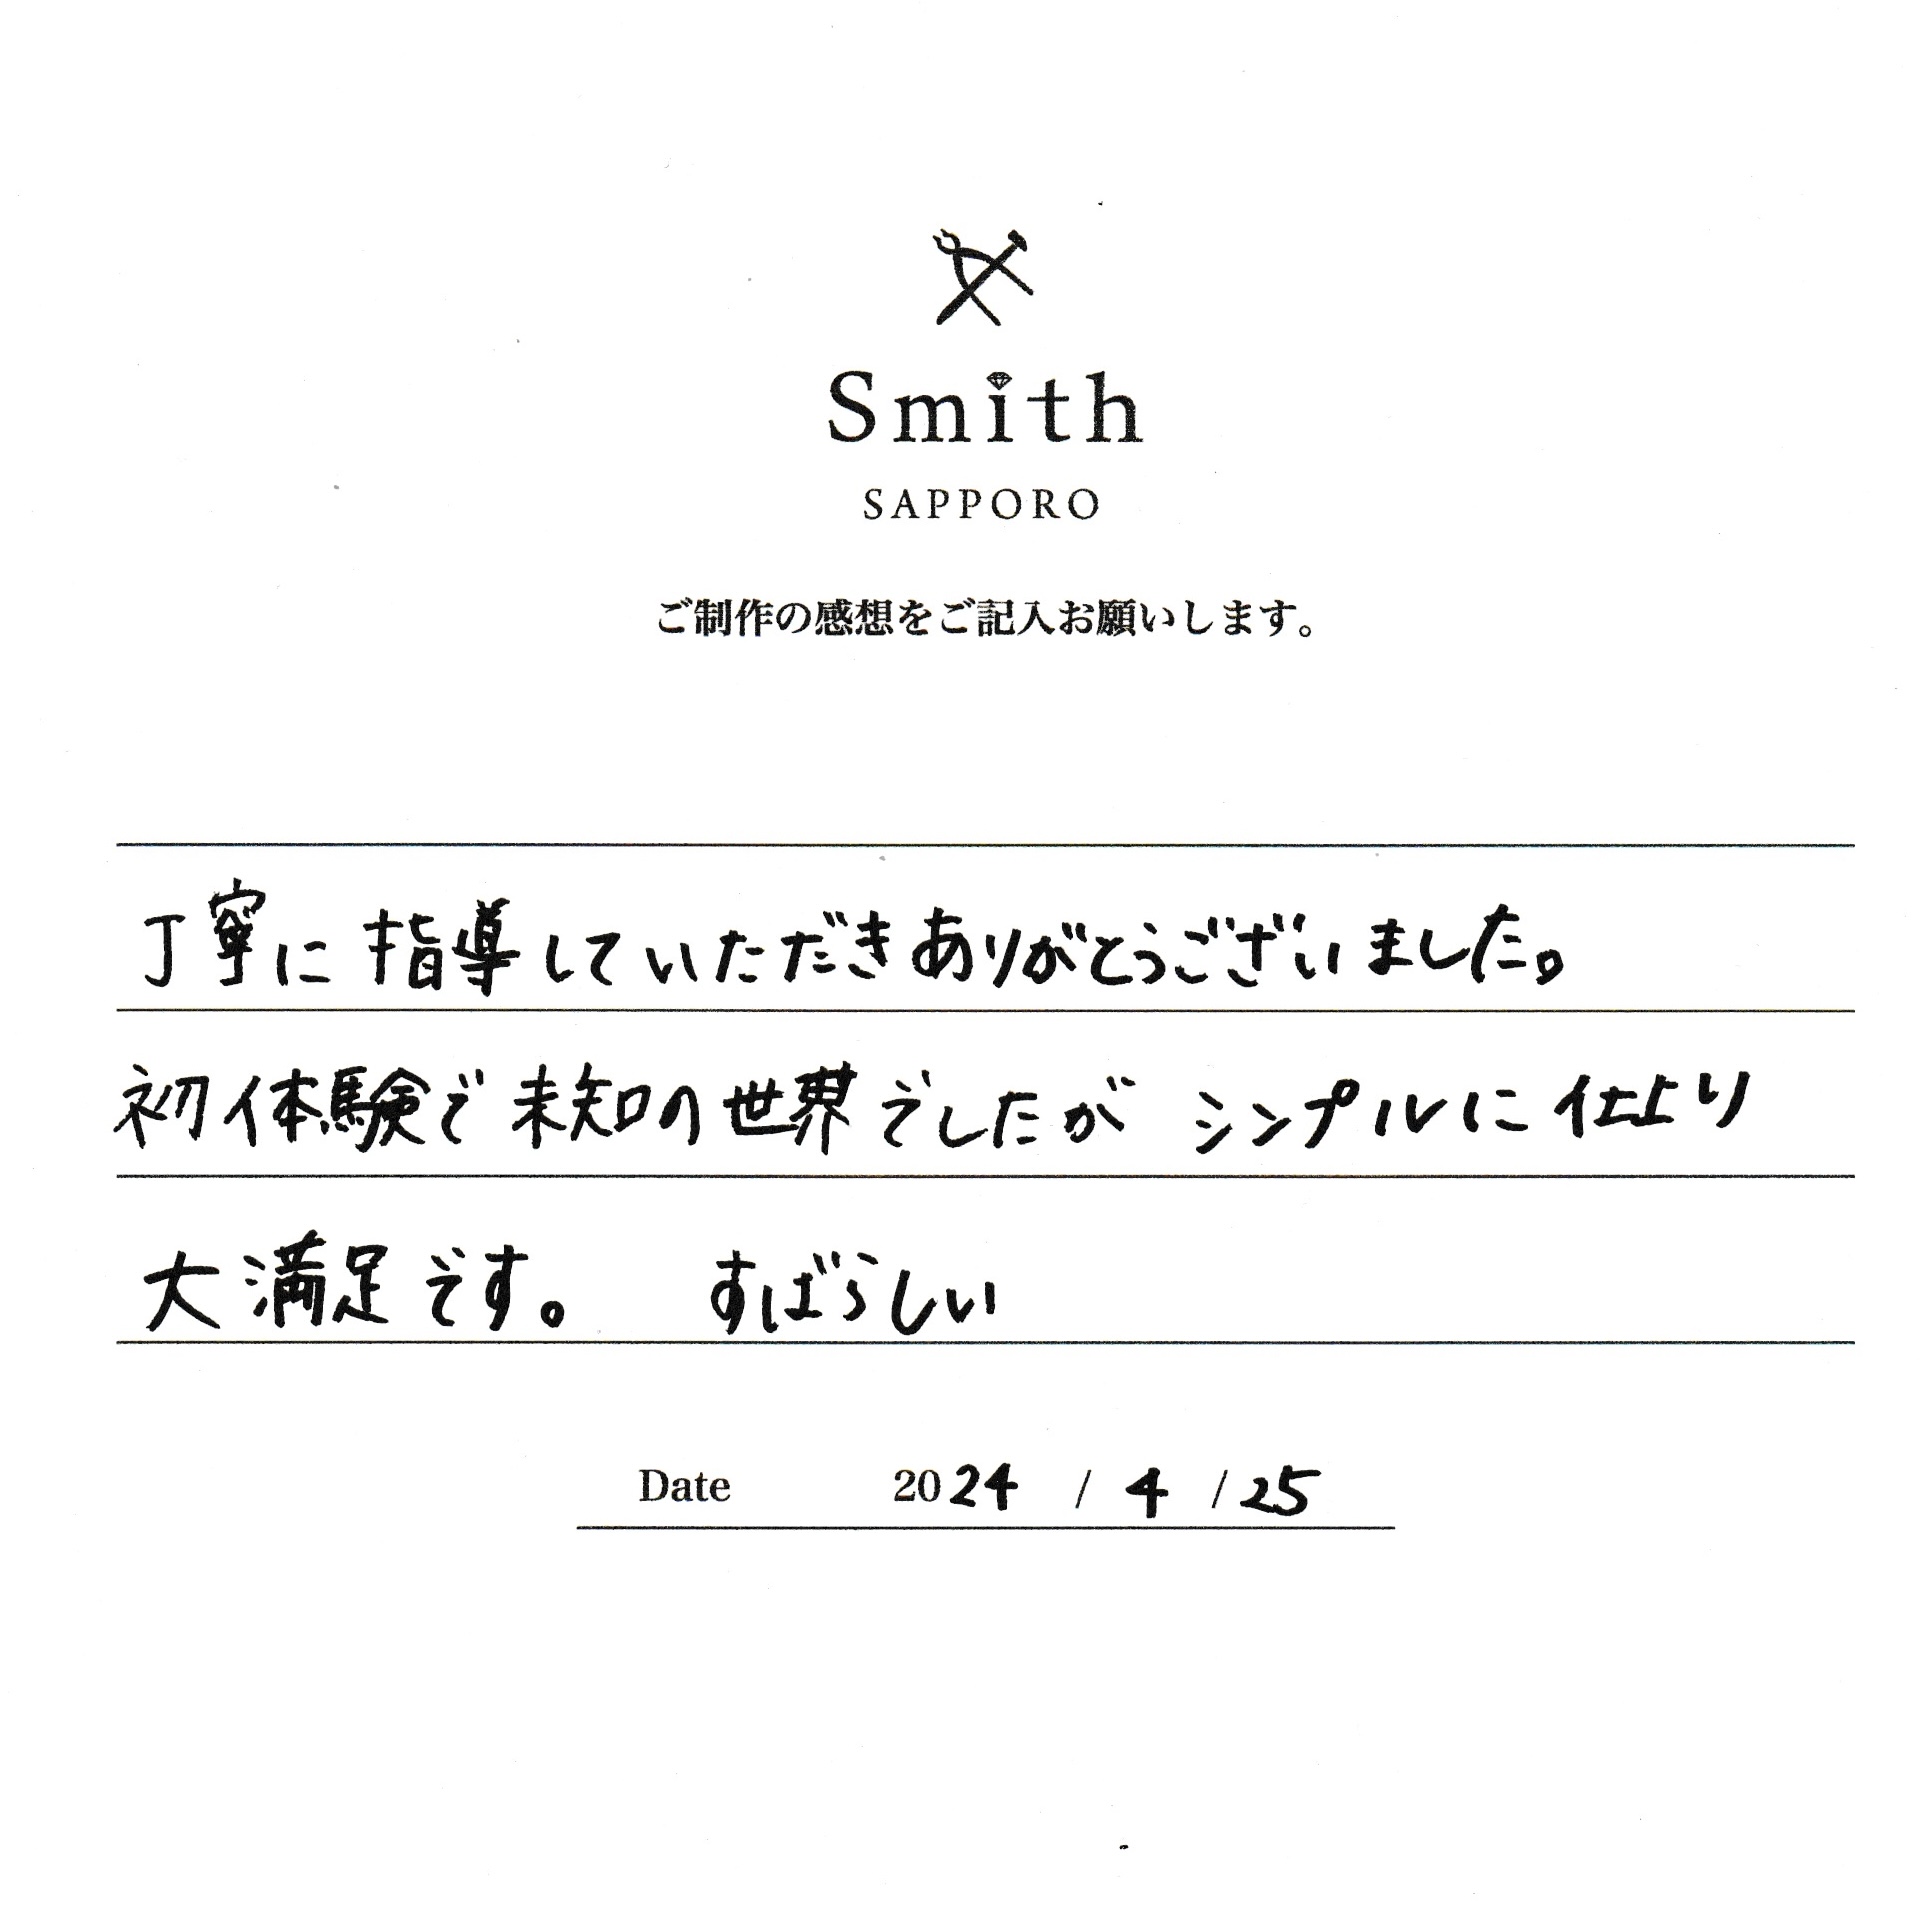 Smith
SAPPORO
ご制作の感想をご記入お願いします。
丁寧に指導していただきありがとうございました。
初体験で未知の世界でしたが シンプルに仕上り
大満足です。 すばらしい
Date 2024 / 4 / 25